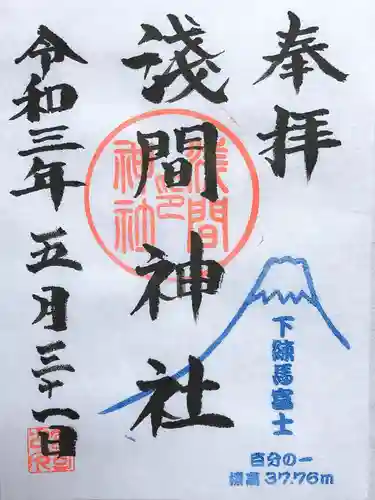 奉拝
淺間神社
淺間
神社
印
令和三年五月三十一日
下練馬富士
百分の一
標高37.76m